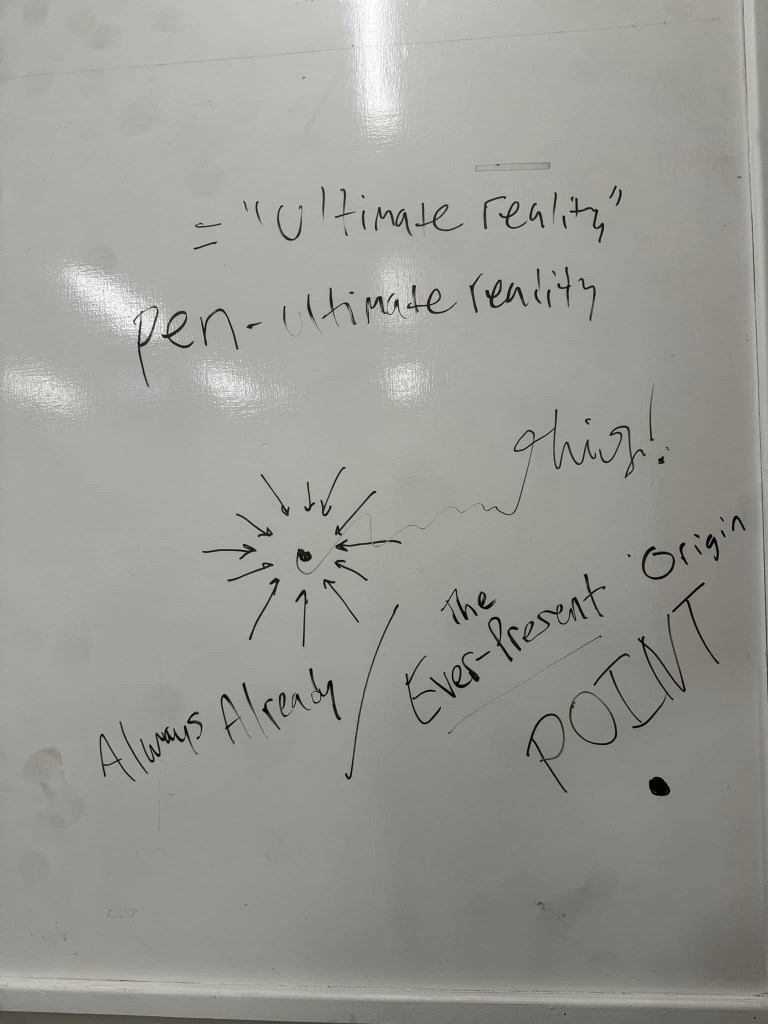 = "Ultimate reality"
pen-ultimate reality
this!
Always Already / The Ever-Present Origin
POINT